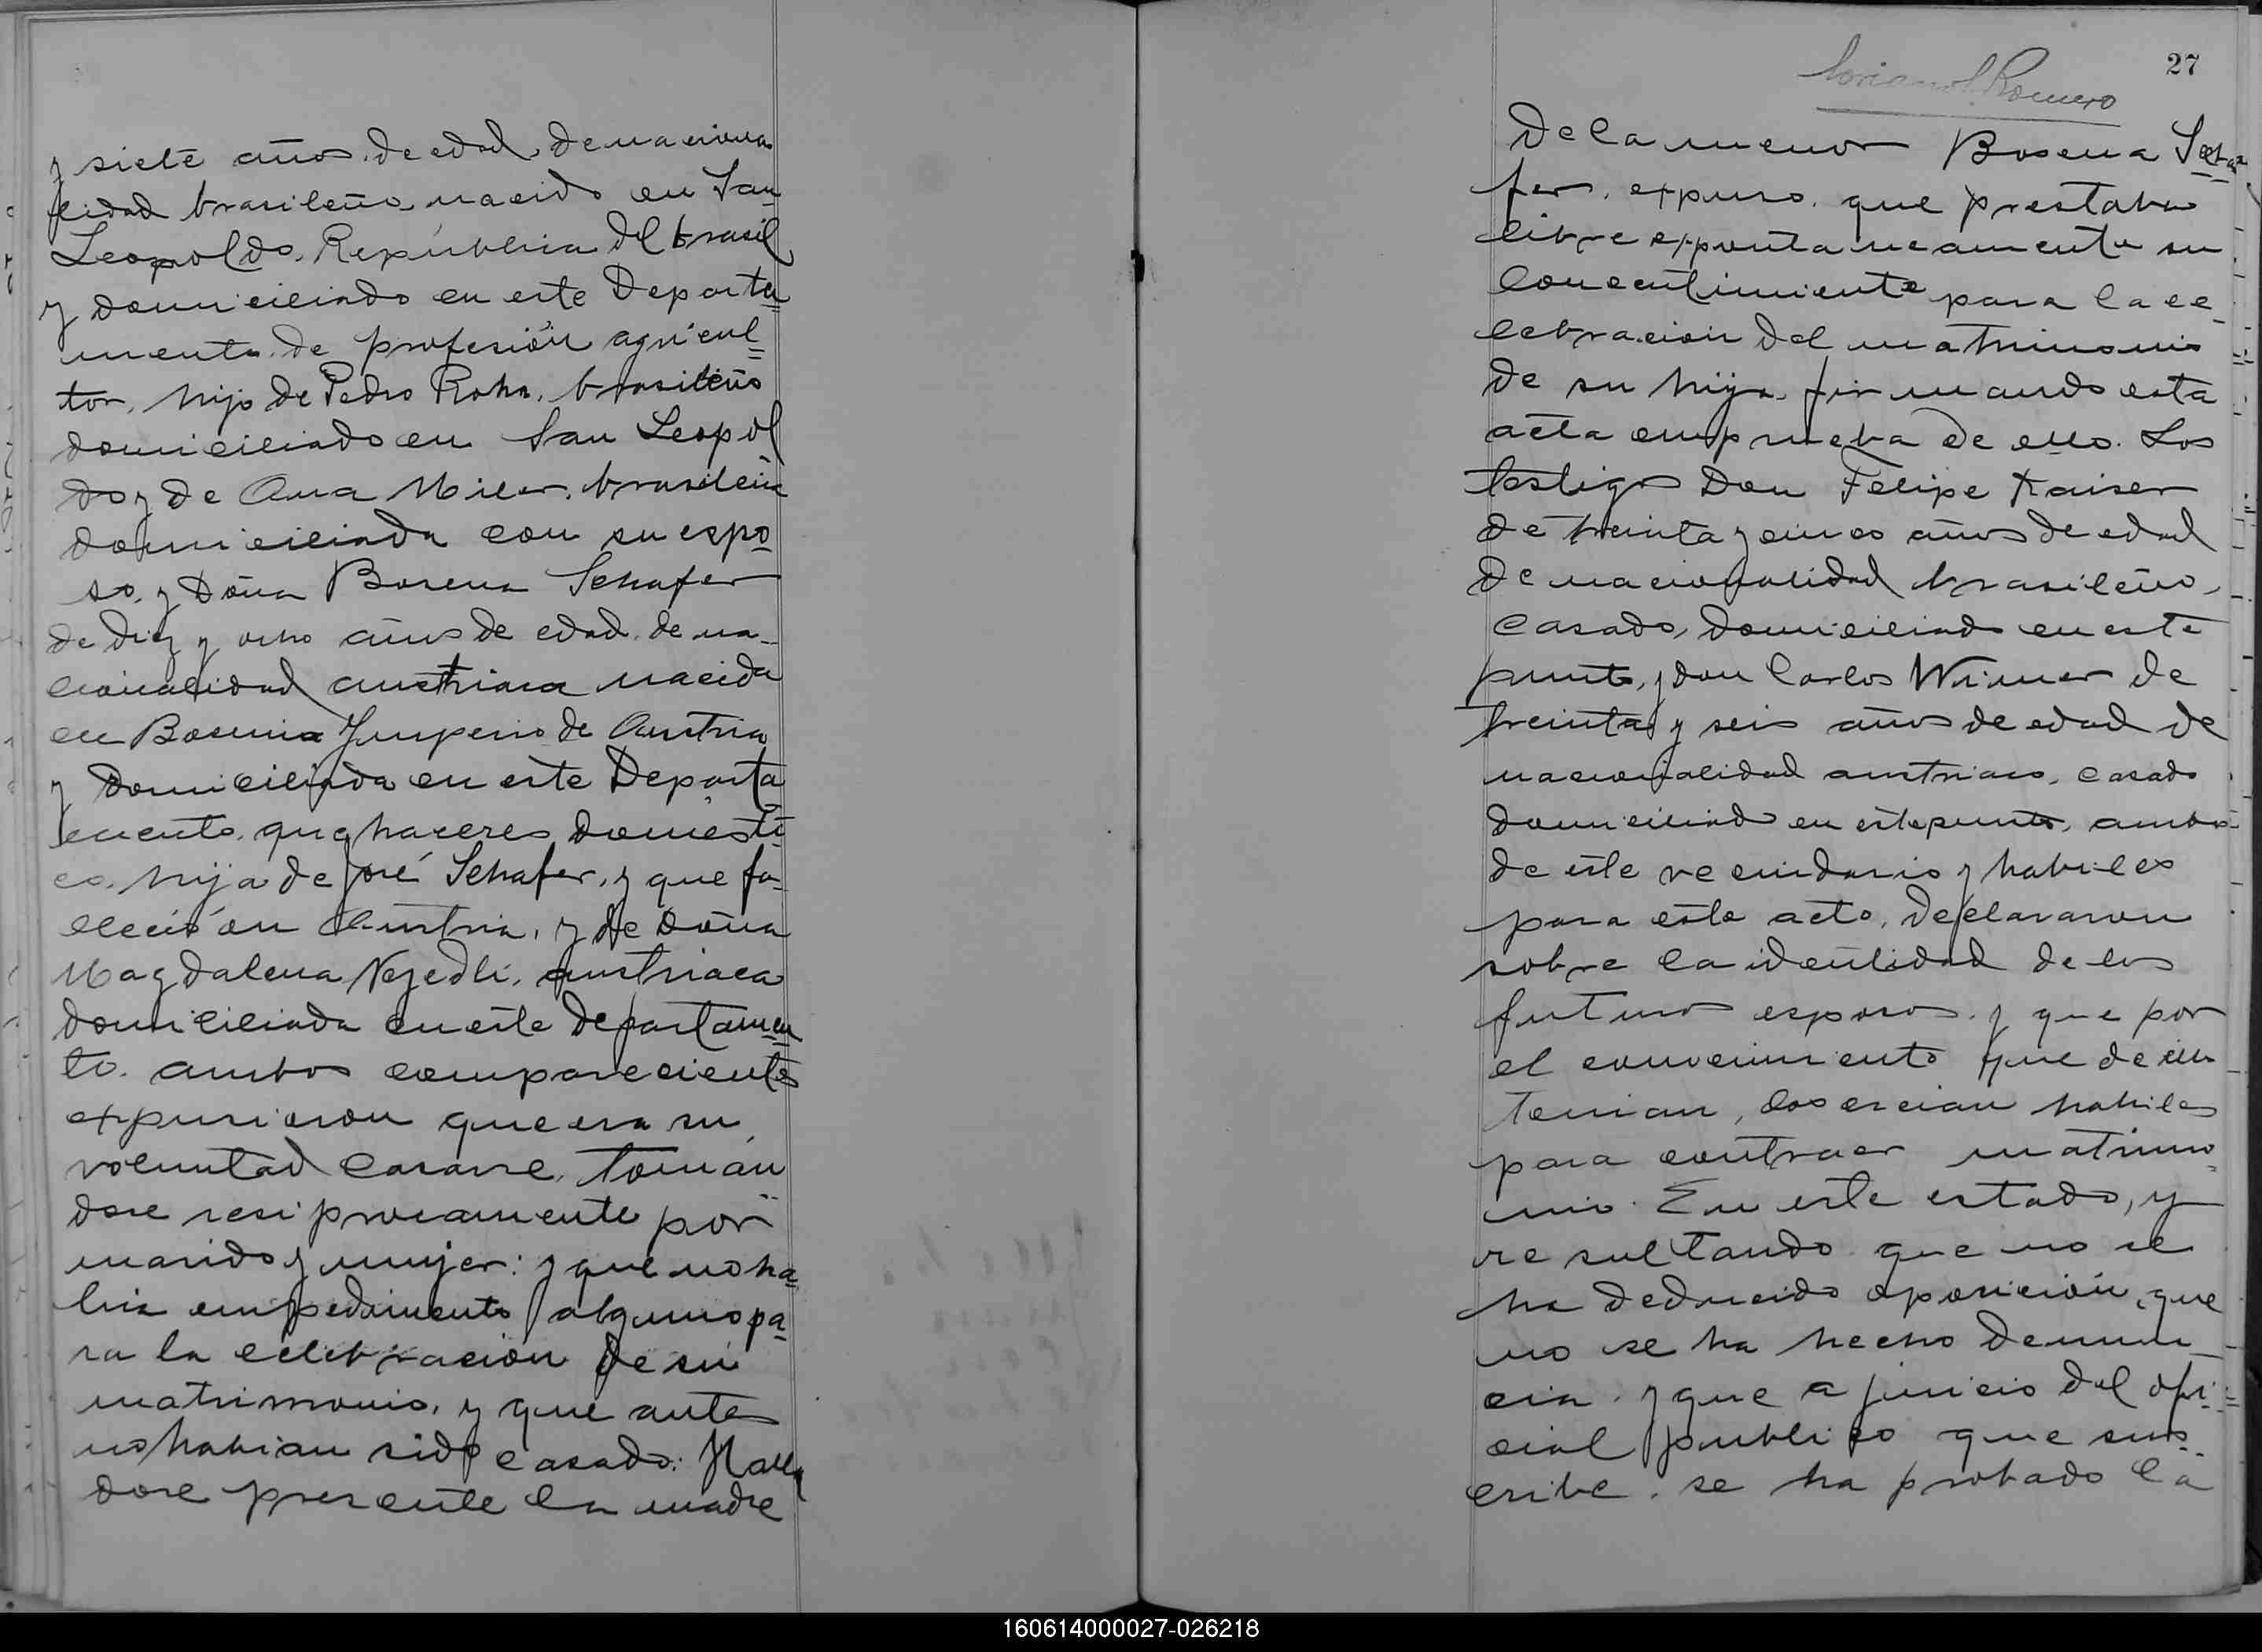 y siete años de edad, de naciona
lidad brasileña nacido en San
Leopoldo, República del brasil
y domiciliado en este Departa=
mento de profesión agricul=
tor, hijo de Pedro Rohr, brasileño
domiciliado en San Leopol
do y de Ana Miler, brasileña
domiciliada con su espo=
so, y Doña Bosena Schafer
de diez y ocho años de edad, de na-
cionalidad austriaca nacida
en Boemia Imperio de Austria
y domiciliada en este Departa
mento, quehaceres domesti=
co, hija de José Schafer, y que fa=
lleció en Austria, y de Doña
Magdalena Nejedli, austriaca
domiciliada en este departamen
to. ambos comparecientes
expusieron que era su
voluntad casarse, toman
dose resiprocamente por
marido y mujer: y que no ha=
bia empedimento alguno pa=
ra la celebracion de su
matrimonio, y que antes
no habian sido casado: Halla
dose presente la madre
27
Romero
De la menor Bosena Scha=
fer, expuso, que prestaba
libre expontaneamente su
concentimiento para la ce_
lebracion del matrimonio
de su hija, firmando esta
acta en prueba de ello. Los
testigos Don Felipe Kaiser
de treinta y cinco años de edad
de nacionalidad brasileño,
casado, domiciliado en este
punto, y don Carlos Wimer de
treinta y seis años de edad de
nacionalidad austriaco, casado
domiciliado en este punto, ambos
de este vecindario y habiles
para este acto, declararon
sobre la identidad de los
futuros esposos, y que por
el conocimiento que de ellos
tenian, los creian habiles
para contraer matrimo=
nio. En este estado, y
resultando que no se
ha deducido oposición, que
no se ha hecho denun_
cia, y que a juicio del ofi=
cial publico que sus=
cribe, se ha probado la
160614000027-026218